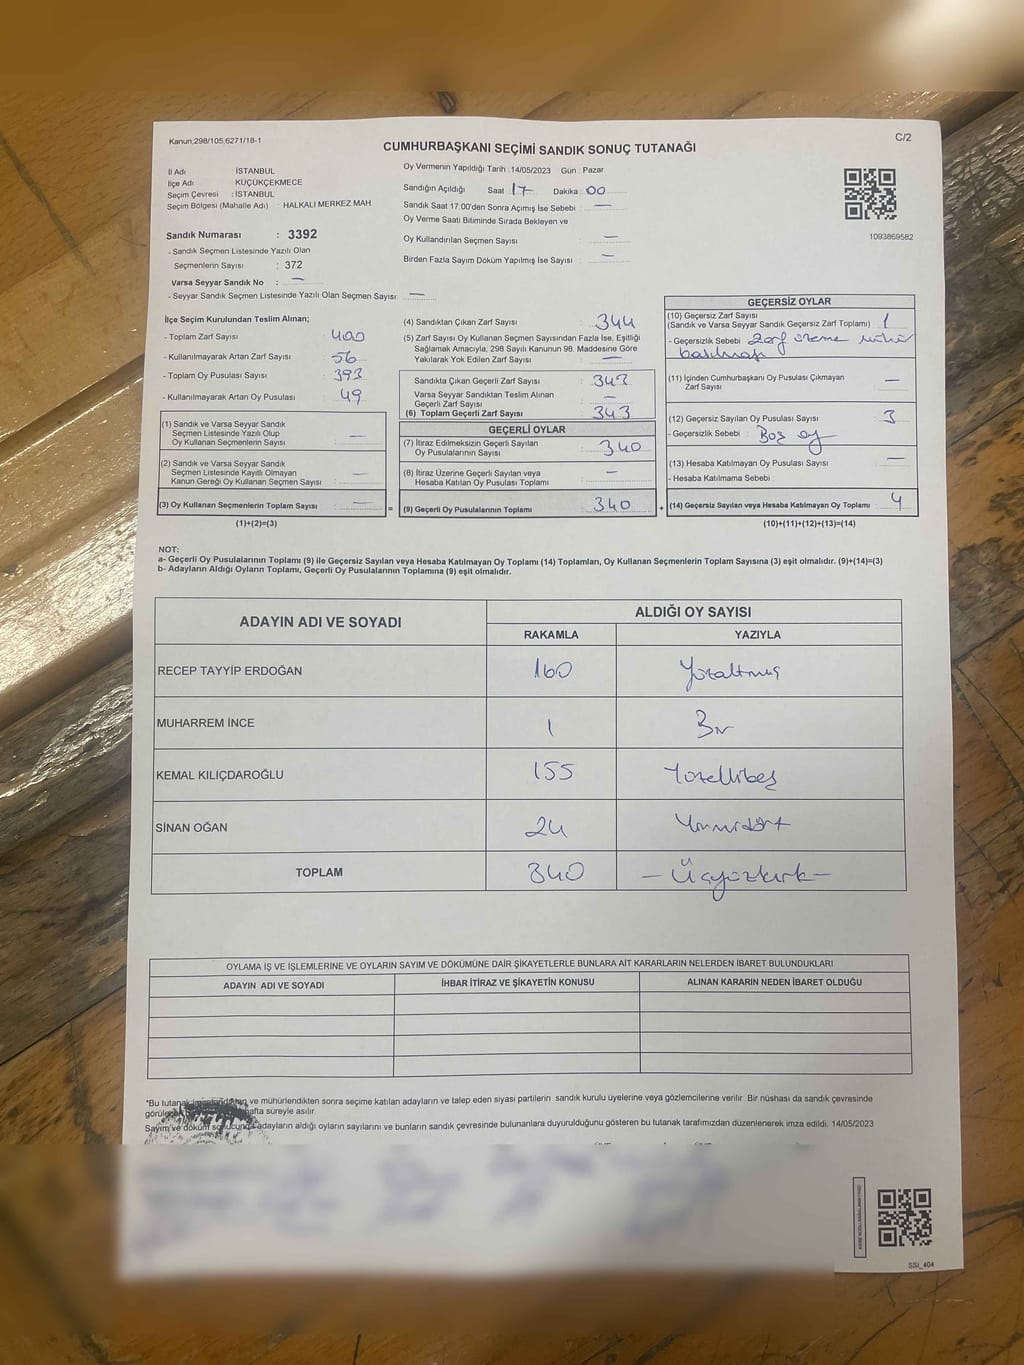 Kanun:298/105,6271/18-1
C/2
CUMHURBAŞKANI SEÇİMİ SANDIK SONUÇ TUTANAĞI
İl Adı İSTANBUL
İlçe Adı KÜÇÜKÇEKMECE
Seçim Çevresi : İSTANBUL
Seçim Bölgesi (Mahalle Adı) HALKALI MERKEZ MAH.
Sandık Numarası : 3392
- Sandık Seçmen Listesinde Yazılı Olan
Seçmenlerin Sayısı : 372
Varsa Seyyar Sandık No : —
- Seyyar Sandık Seçmen Listesinde Yazılı Olan Seçmen Sayısı: —
Oy Vermenin Yapıldığı Tarih :14/05/2023 Gün : Pazar
Sandığın Açıldığı Saat 17 Dakika : 00
Sandık Saat 17.00'den Sonra Açılmış İse Sebebi : —
Oy Verme Saati Bitiminde Sırada Bekleyen ve
Oy Kullandırılan Seçmen Sayısı : —
Birden Fazla Sayım Döküm Yapılmış İse Sayısı : —
1093869582
İlçe Seçim Kurulundan Teslim Alınan;
- Toplam Zarf Sayısı : 400
- Kullanılmayarak Artan Zarf Sayısı : 56
- Toplam Oy Pusulası Sayısı : 393
- Kullanılmayarak Artan Oy Pusulası : 49
(1) Sandık ve Varsa Seyyar Sandık
Seçmen Listesinde Yazılı Olup
Oy Kullanan Seçmenlerin Sayısı : —
(2) Sandık ve Varsa Seyyar Sandık
Seçmen Listesinde Kayıtlı Olmayan
Kanun Gereği Oy Kullanan Seçmen Sayısı : —
(3) Oy Kullanan Seçmenlerin Toplam Sayısı : —
(1)+(2)=(3)
(4) Sandıktan Çıkan Zarf Sayısı : 344
(5) Zarf Sayısı Oy Kullanan Seçmen Sayısından Fazla İse, Eşitliği
Sağlamak Amacıyla, 298 Sayılı Kanunun 98. Maddesine Göre
Yakılarak Yok Edilen Zarf Sayısı : —
Sandıkta Çıkan Geçerli Zarf Sayısı : 343
Varsa Seyyar Sandıktan Teslim Alınan
Geçerli Zarf Sayısı : —
(6) Toplam Geçerli Zarf Sayısı : 343
GEÇERLİ OYLAR
(7) İtiraz Edilmeksizin Geçerli Sayılan
Oy Pusulalarının Sayısı : 340
(8) İtiraz Üzerine Geçerli Sayılan veya
Hesaba Katılan Oy Pusulası Toplamı : —
= (9) Geçerli Oy Pusulalarının Toplamı : 340
GEÇERSİZ OYLAR
(10) Geçersiz Zarf Sayısı
(Sandık ve Varsa Seyyar Sandık Geçersiz Zarf Toplamı) : 1
- Geçersizlik Sebebi : Zarf üzerine mühür
basılması
(11) İçinden Cumhurbaşkanı Oy Pusulası Çıkmayan
Zarf Sayısı : —
(12) Geçersiz Sayılan Oy Pusulası Sayısı : 3
- Geçersizlik Sebebi : Boş oy
(13) Hesaba Katılmayan Oy Pusulası Sayısı : —
- Hesaba Katılmama Sebebi :
+ (14) Geçersiz Sayılan veya Hesaba Katılmayan Oy Toplamı : 4
(10)+(11)+(12)+(13)=(14)
NOT:
a- Geçerli Oy Pusulalarının Toplamı (9) ile Geçersiz Sayılan veya Hesaba Katılmayan Oy Toplamı (14) Toplamları, Oy Kullanan Seçmenlerin Toplam Sayısına (3) eşit olmalıdır. (9)+(14)=(3)
b- Adayların Aldığı Oyların Toplamı, Geçerli Oy Pusulalarının Toplamına (9) eşit olmalıdır.
ADAYIN ADI VE SOYADI ALDIĞI OY SAYISI
RAKAMLA YAZIYLA
RECEP TAYYİP ERDOĞAN 160 Yüzaltmış
MUHARREM İNCE 1 Bir
KEMAL KILIÇDAROĞLU 155 Yüzellibeş
SİNAN OĞAN 24 Yirmidört
TOPLAM 340 — Üçyüzkırk —
OYLAMA İŞ VE İŞLEMLERİNE VE OYLARIN SAYIM VE DÖKÜMÜNE DAİR ŞİKAYETLERLE BUNLARA AİT KARARLARIN NELERDEN İBARET BULUNDUKLARI
ADAYIN ADI VE SOYADI İHBAR İTİRAZ VE ŞİKAYETİN KONUSU ALINAN KARARIN NEDEN İBARET OLDUĞU
*Bu tutanak ve mühürlendikten sonra seçime katılan adayların ve talep eden siyasi partilerin sandık kurulu üyelerine veya gözlemcilerine verilir. Bir nüshası da sandık çevresinde
hafta süreyle asılır.
Sayım ve döküm sonucunda adayların aldığı oyların sayılarını ve bunların sandık çevresinde bulunanlara duyurulduğunu gösteren bu tutanak tarafımızdan düzenlenerek imza edildi. 14/05/2023
SSI_404